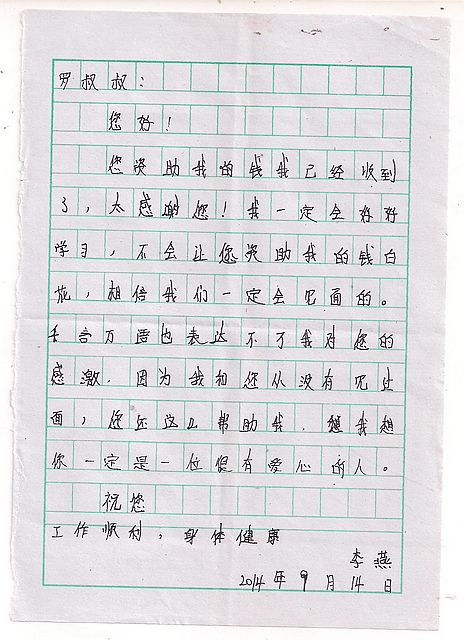 罗叔叔：
您好！
您资助我的钱我已经收到
了，太感谢您！我一定会好好
学习，不会让您资助我的钱白
花，相信我们一定会见面的。
千言万语也表达不了我对您的
感激．因为我和您从没有见过
面，您还这么帮助我．想我想
你一定是一位很有爱心的人。
祝您
工作顺利，身体健康
李燕
2014年9月14日